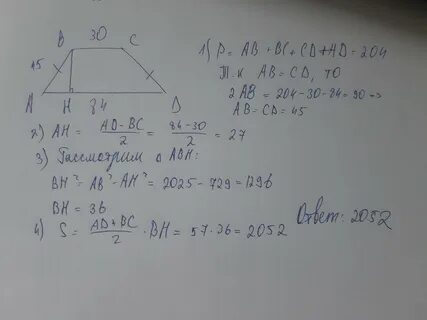 30
B C
45
A H 84 D
1) P = AB + BC + CD + AD = 204
Т.к AB = CD, то
2AB = 204 - 30 - 84 = 90 =>
AB = CD = 45
2) AH = (AD - BC)/2 = (84 - 30)/2 = 27
3) Рассмотрим △ ABH:
BH² = AB² - AH² = 2025 - 729 = 1296
BH = 36
4) S = (AD + BC)/2 · BH = 57 · 36 = 2052
Ответ: 2052